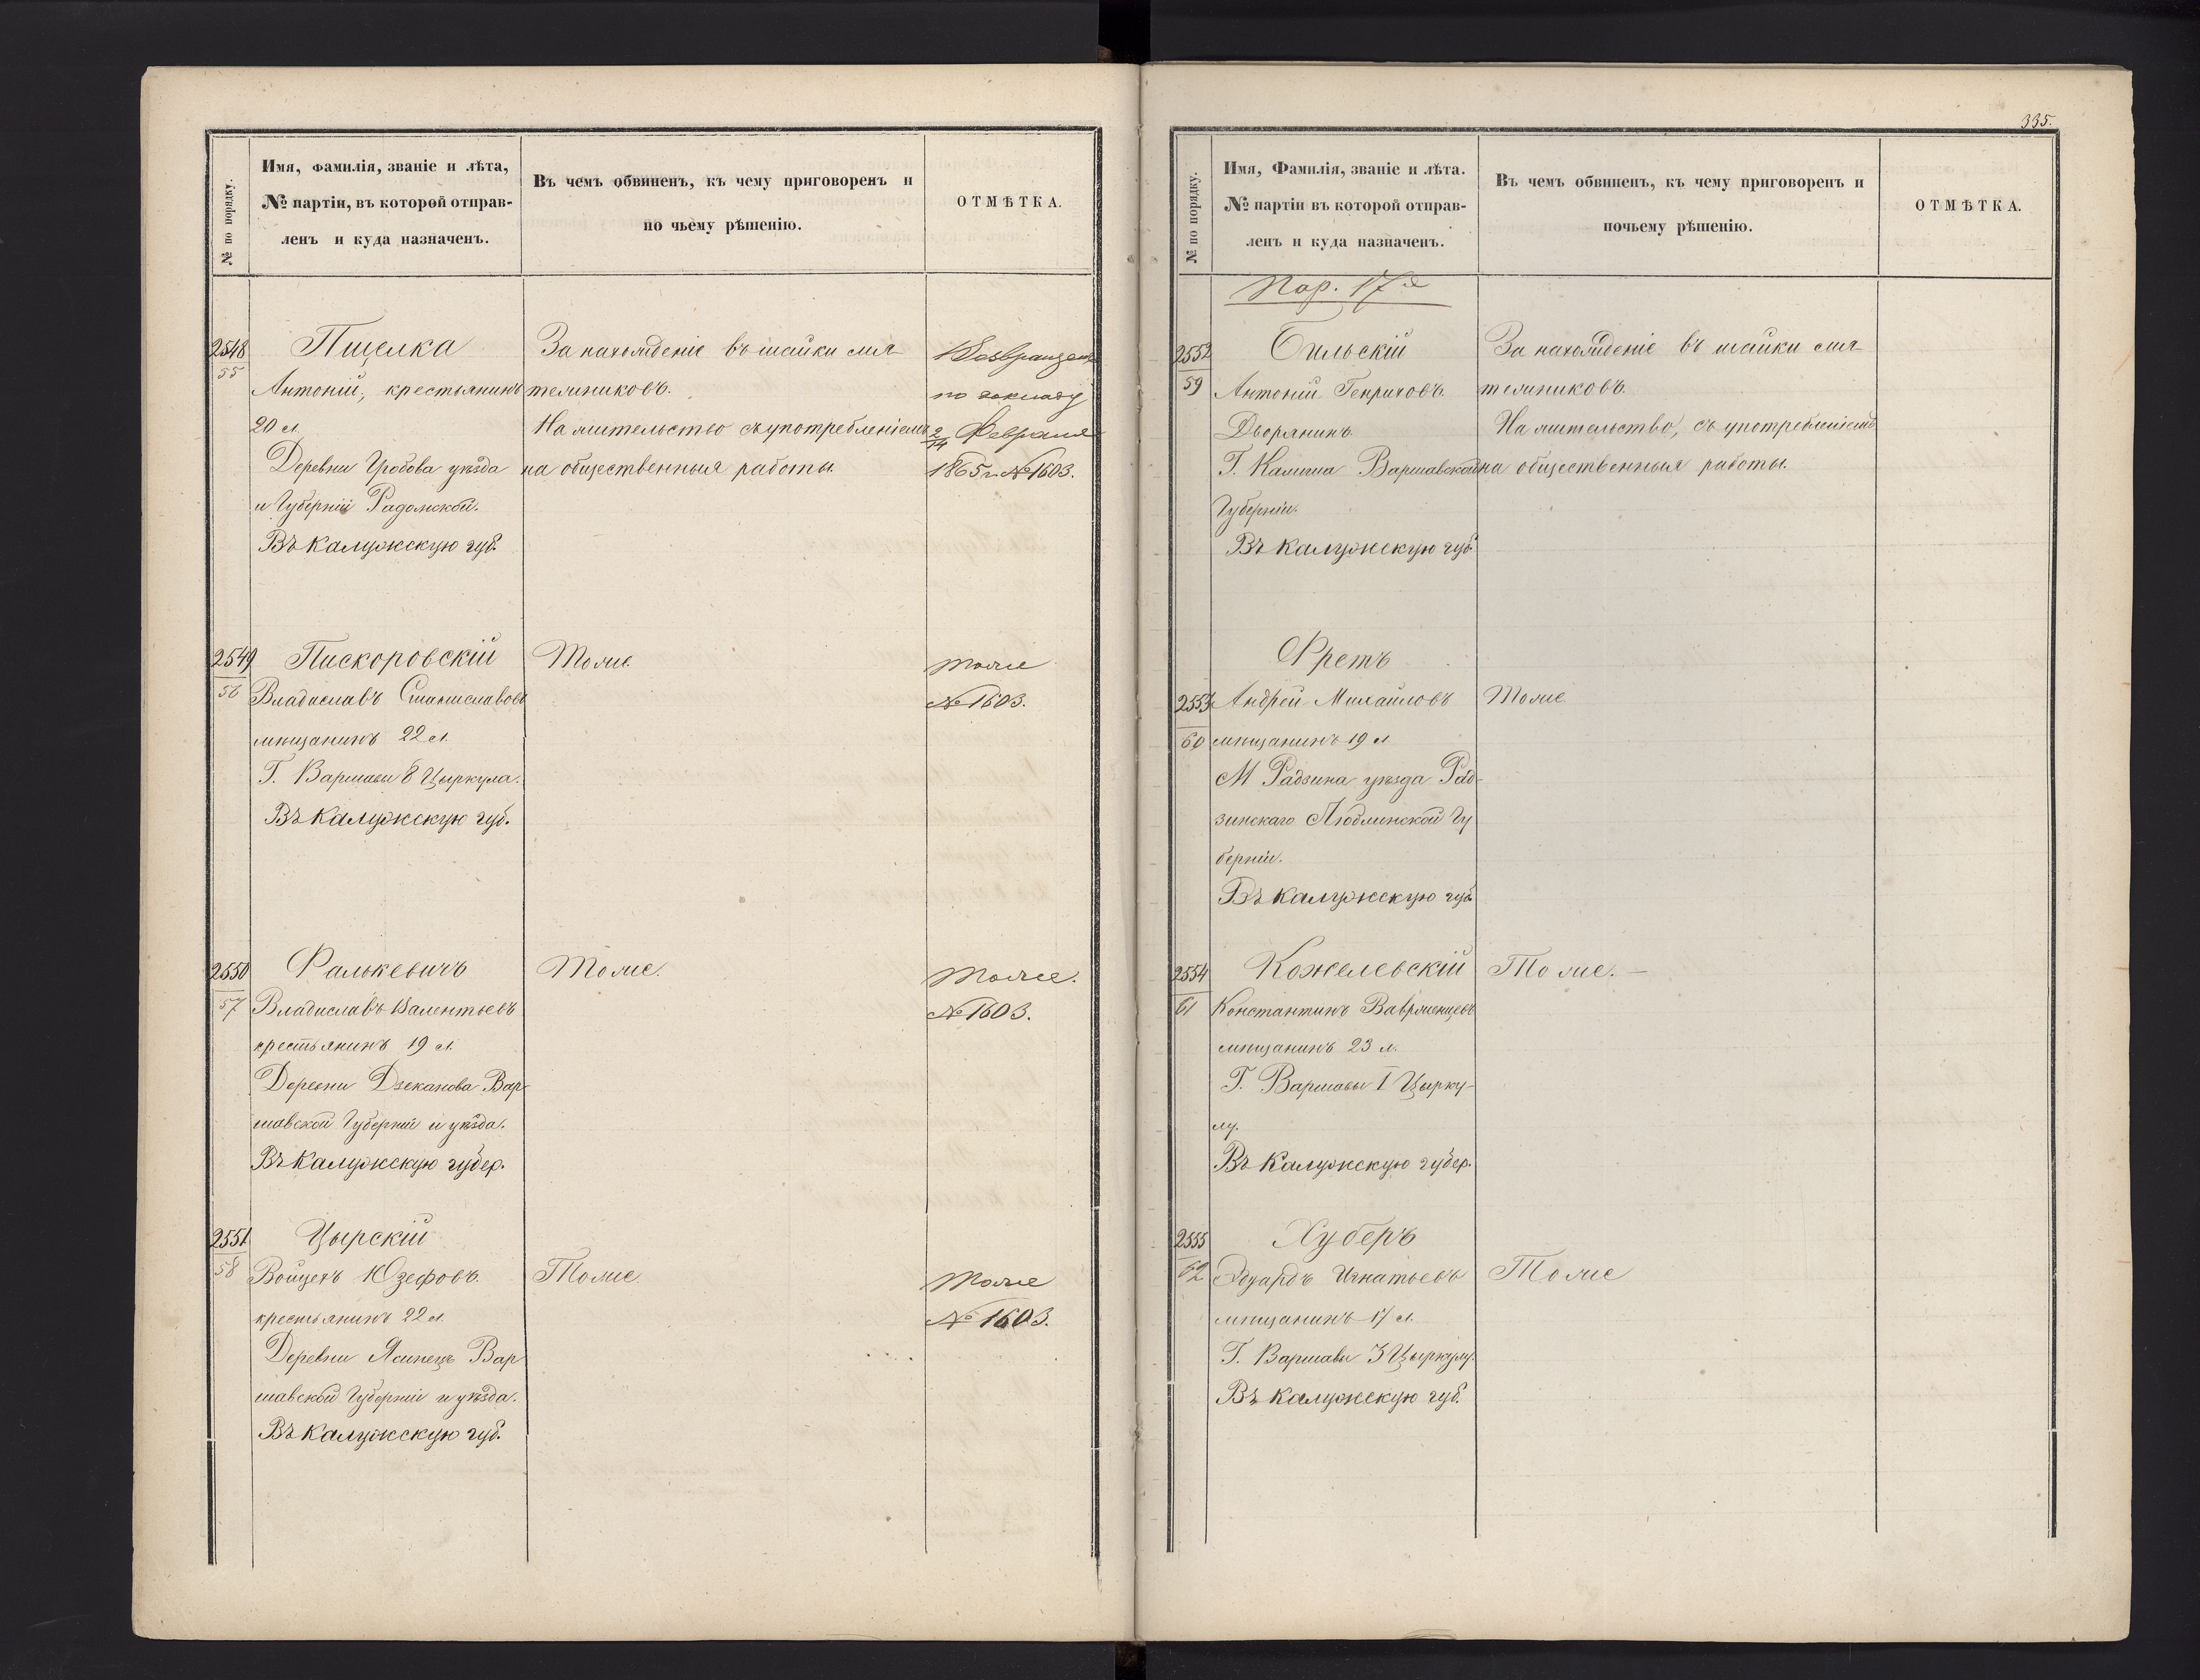 № по порядку.
Имя, фамилія, званіе и лѣта,
№ партіи, въ которой отправ-
ленъ и куда назначенъ.
Въ чемъ обвиненъ, къ чему приговоренъ и
по чьему рѣшенію.
ОТМѢТКА.
2548
55
Пщелка
Антоній, крестьянинъ
20 л.
Деревни Гробова уѣзда
и Губерніи Радомской.
Въ Калужскую губ.
За нахожденіе въ шайки мя-
тежниковъ.
На жительство съ употребленіемъ
на общественныя работы.
Возвращенъ
по докладу
2/14 Февраля
1865 г. № 1603.
2549
56
Пискоровскій
Владиславъ Станиславовъ
мѣщанинъ 22 л.
Г. Варшавы 8 Цыркула.
Въ Калужскую губ.
Тоже.
тоже
№ 1603.
2550
57
Фалькевичъ
Владиславъ Валентьевъ
крестьянинъ 19 л.
Деревни Дзеканова Вар-
шавской Губерніи и уѣзда.
Въ Калужскую губер.
Тоже.
тоже.
№ 1603.
2551
58
Цырскій
Войцехъ Юзефовъ.
крестьянинъ 22 л.
Деревни Ясинецъ Вар
шавской Губерніи и уѣзда.
Въ Калужскую губ.
Тоже
тоже
№ 1603.
335.
№ по порядку.
Имя, Фамилія, званіе и лѣта.
№ партіи въ которой отправ-
ленъ и куда назначенъ.
Въ чемъ обвиненъ, къ чему приговоренъ и
почьему рѣшенію.
ОТМѢТКА.
Пар. 17я
2552
59
Бильскій
Антоній Генриховъ.
Дворянинъ.
Г. Калиша Варшавской
Губерніи.
Въ Калужскую губ.
За нахожденіе въ шайки мя-
тежниковъ.
На жительство, съ употребленіемъ
на общественныя работы.
2553
60
Фретъ
Андрей Михайловъ
мѣщанинъ 19 л
М Радзина уѣзда Рад-
зинскаго Люблинской Гу
берніи.
Въ Калужскую губ.
Тоже
2554
61
Кожелевскій
Константинъ Вавржинцевъ
мѣщанинъ 23 л.
Г. Варшавы I Цырку-
лу.
Въ Калужскую губер.
Тоже. —
2555
62
Хуберъ
Эдуардъ Игнатьевъ
мѣщанинъ 17 л.
Г. Варшавы 3 Цыркулу.
Въ Калужскую губ.
Тоже